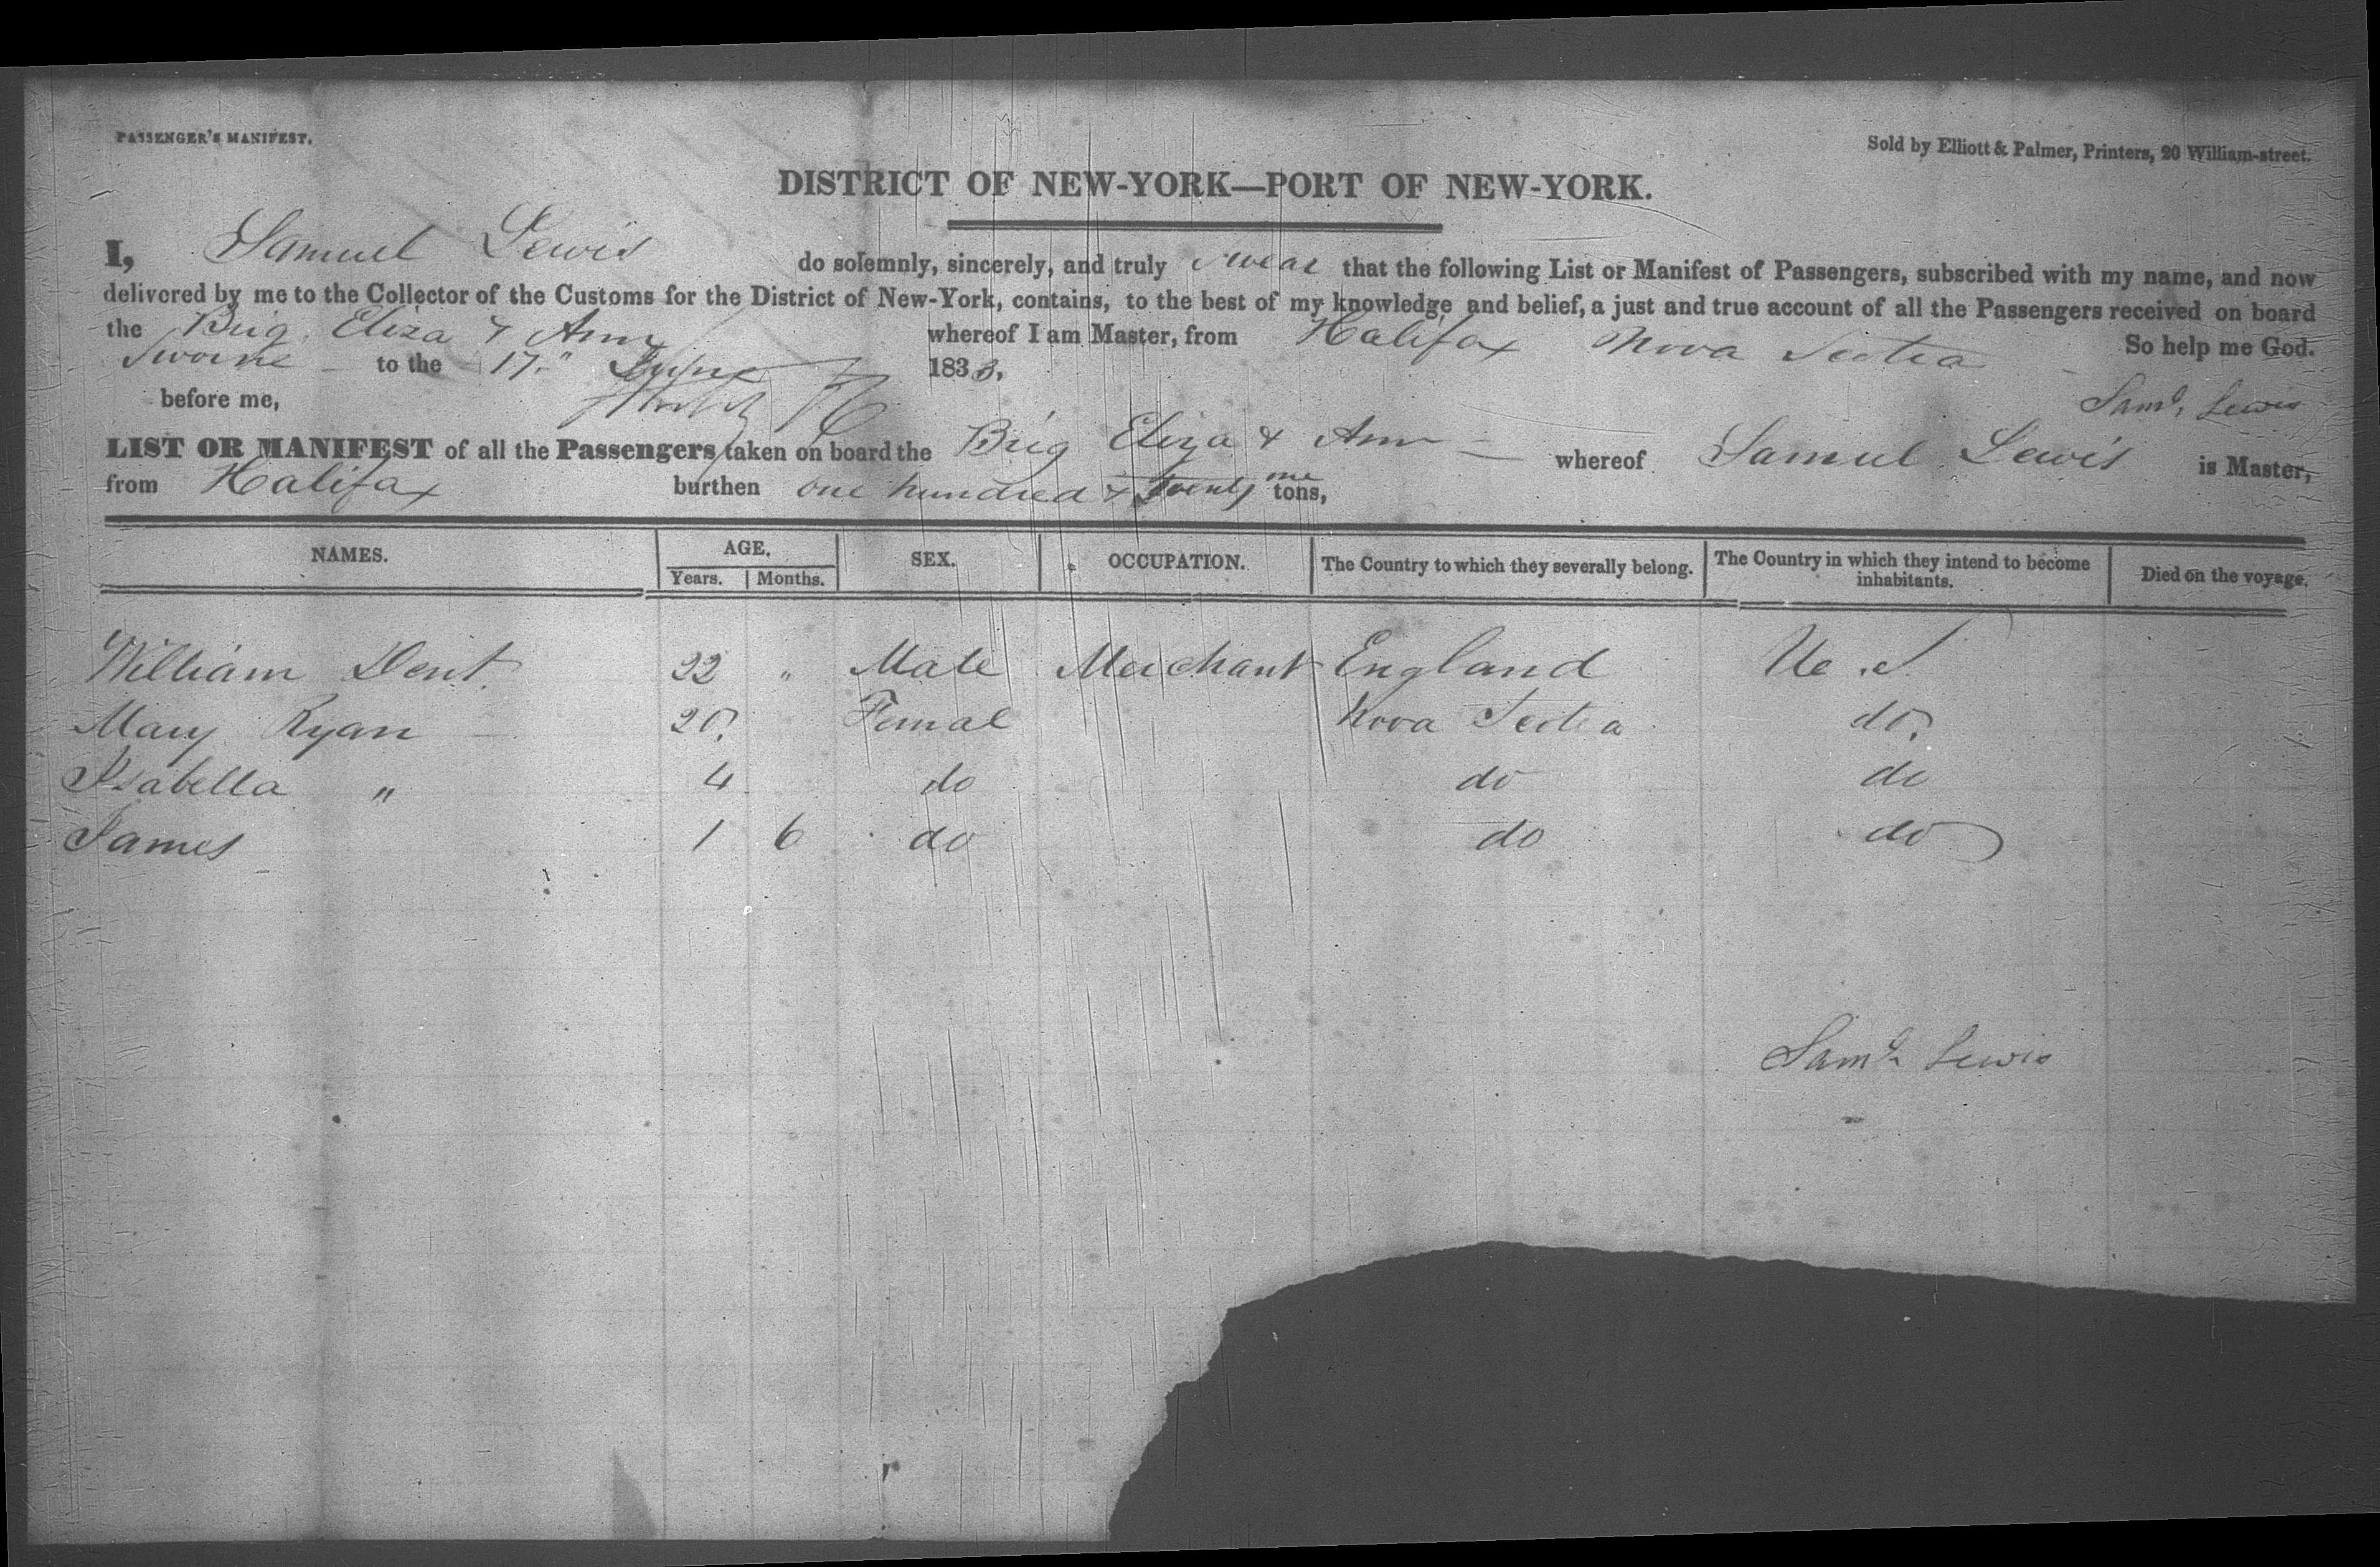 PASSENGER'S MANIFEST.
Sold by Elliott & Palmer, Printers, 20 William-street.
DISTRICT OF NEW-YORK—PORT OF NEW-YORK.
I, Samuel Lewis do solemnly, sincerely, and truly swear that the following List or Manifest of Passengers, subscribed with my name, and now
delivered by me to the Collector of the Customs for the District of New-York, contains, to the best of my knowledge and belief, a just and true account of all the Passengers received on board
the Brig Eliza & Ann whereof I am Master, from Halifax Nova Scotia So help me God.
Sworne to the 17" June 1833,
before me, Saml. Lewis
LIST OR MANIFEST of all the Passengers taken on board the Brig Eliza & Ann whereof Samuel Lewis is Master,
from Halifax burthen one hundred & twenty one tons,
NAMES. AGE. SEX. OCCUPATION. The Country to which they severally belong. The Country in which they intend to become inhabitants. Died on the voyage.
Years. Months.
William Dent 22 " Male Merchant England U.S.
Mary Ryan 20 Femal Nova Scotia do
Isabella " 4 do do do
James 1 6 do do do
Saml. Lewis